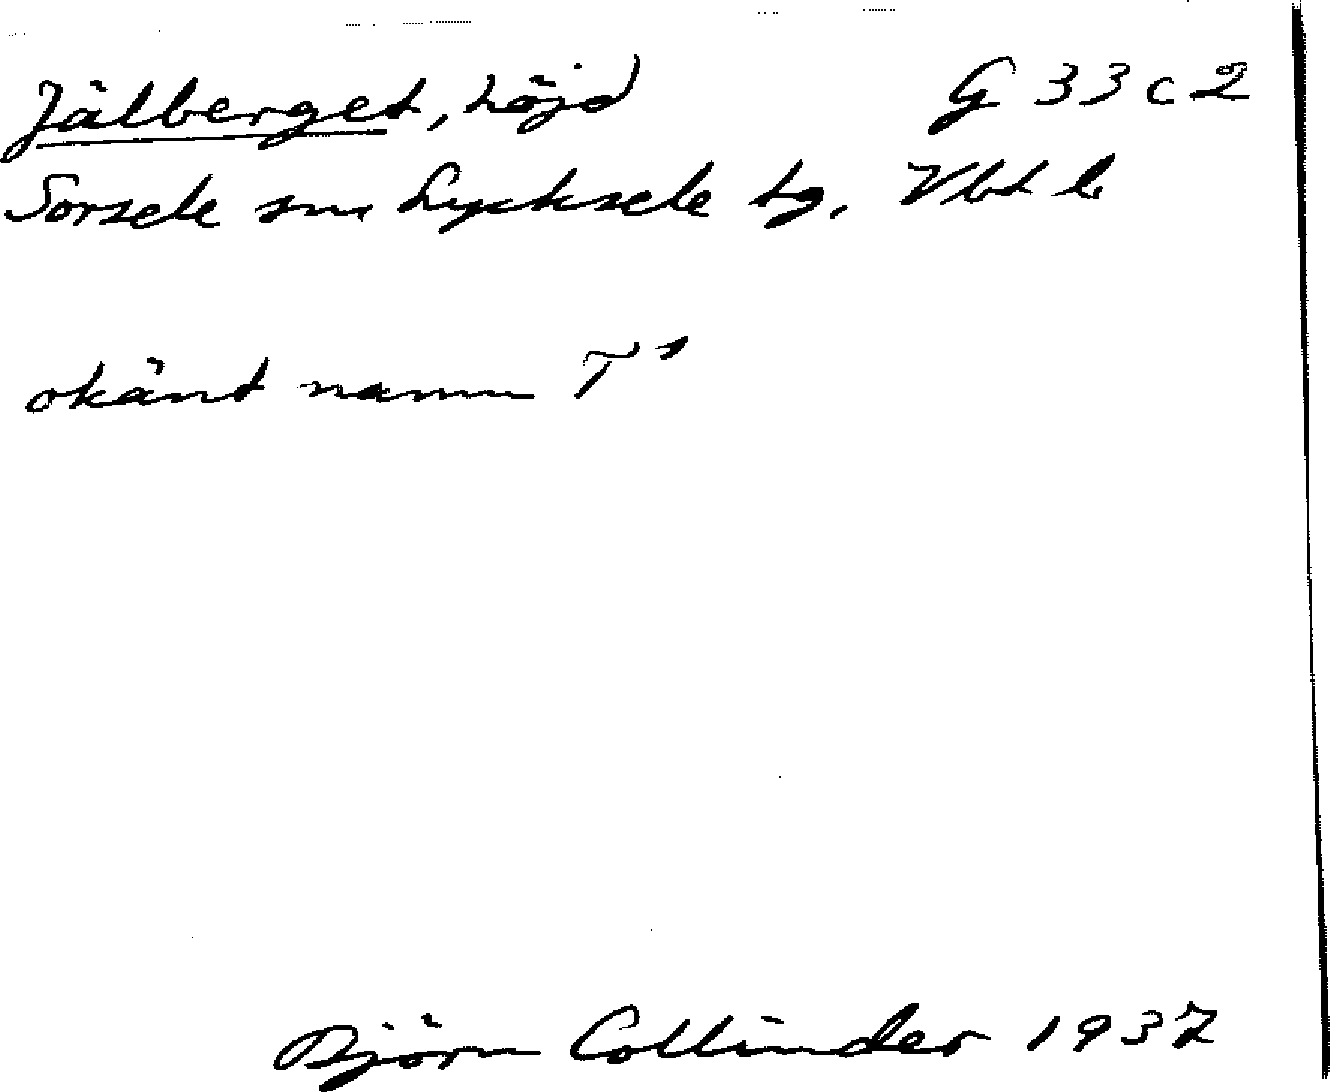 Jälberget, höjd G 33 c 2
Sorsele sn Lycksele tg. Vbtl
okänt namn T¹
Björn Collinder 1937